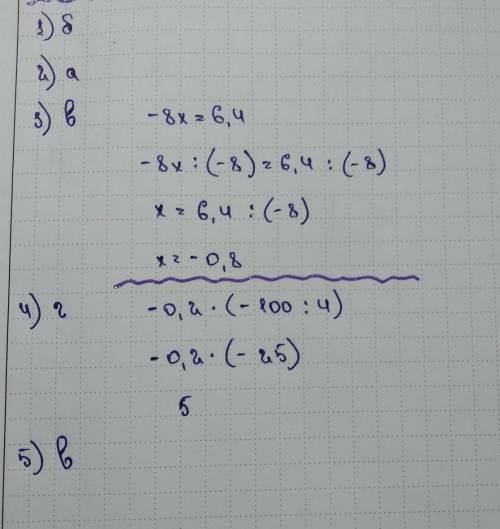 1) б
2) а
3) в
-8x = 6,4
-8x : (-8) = 6,4 : (-8)
x = 6,4 : (-8)
x = -0,8
4) г
-0,2 · (-100 : 4)
-0,2 · (-25)
5
5) в